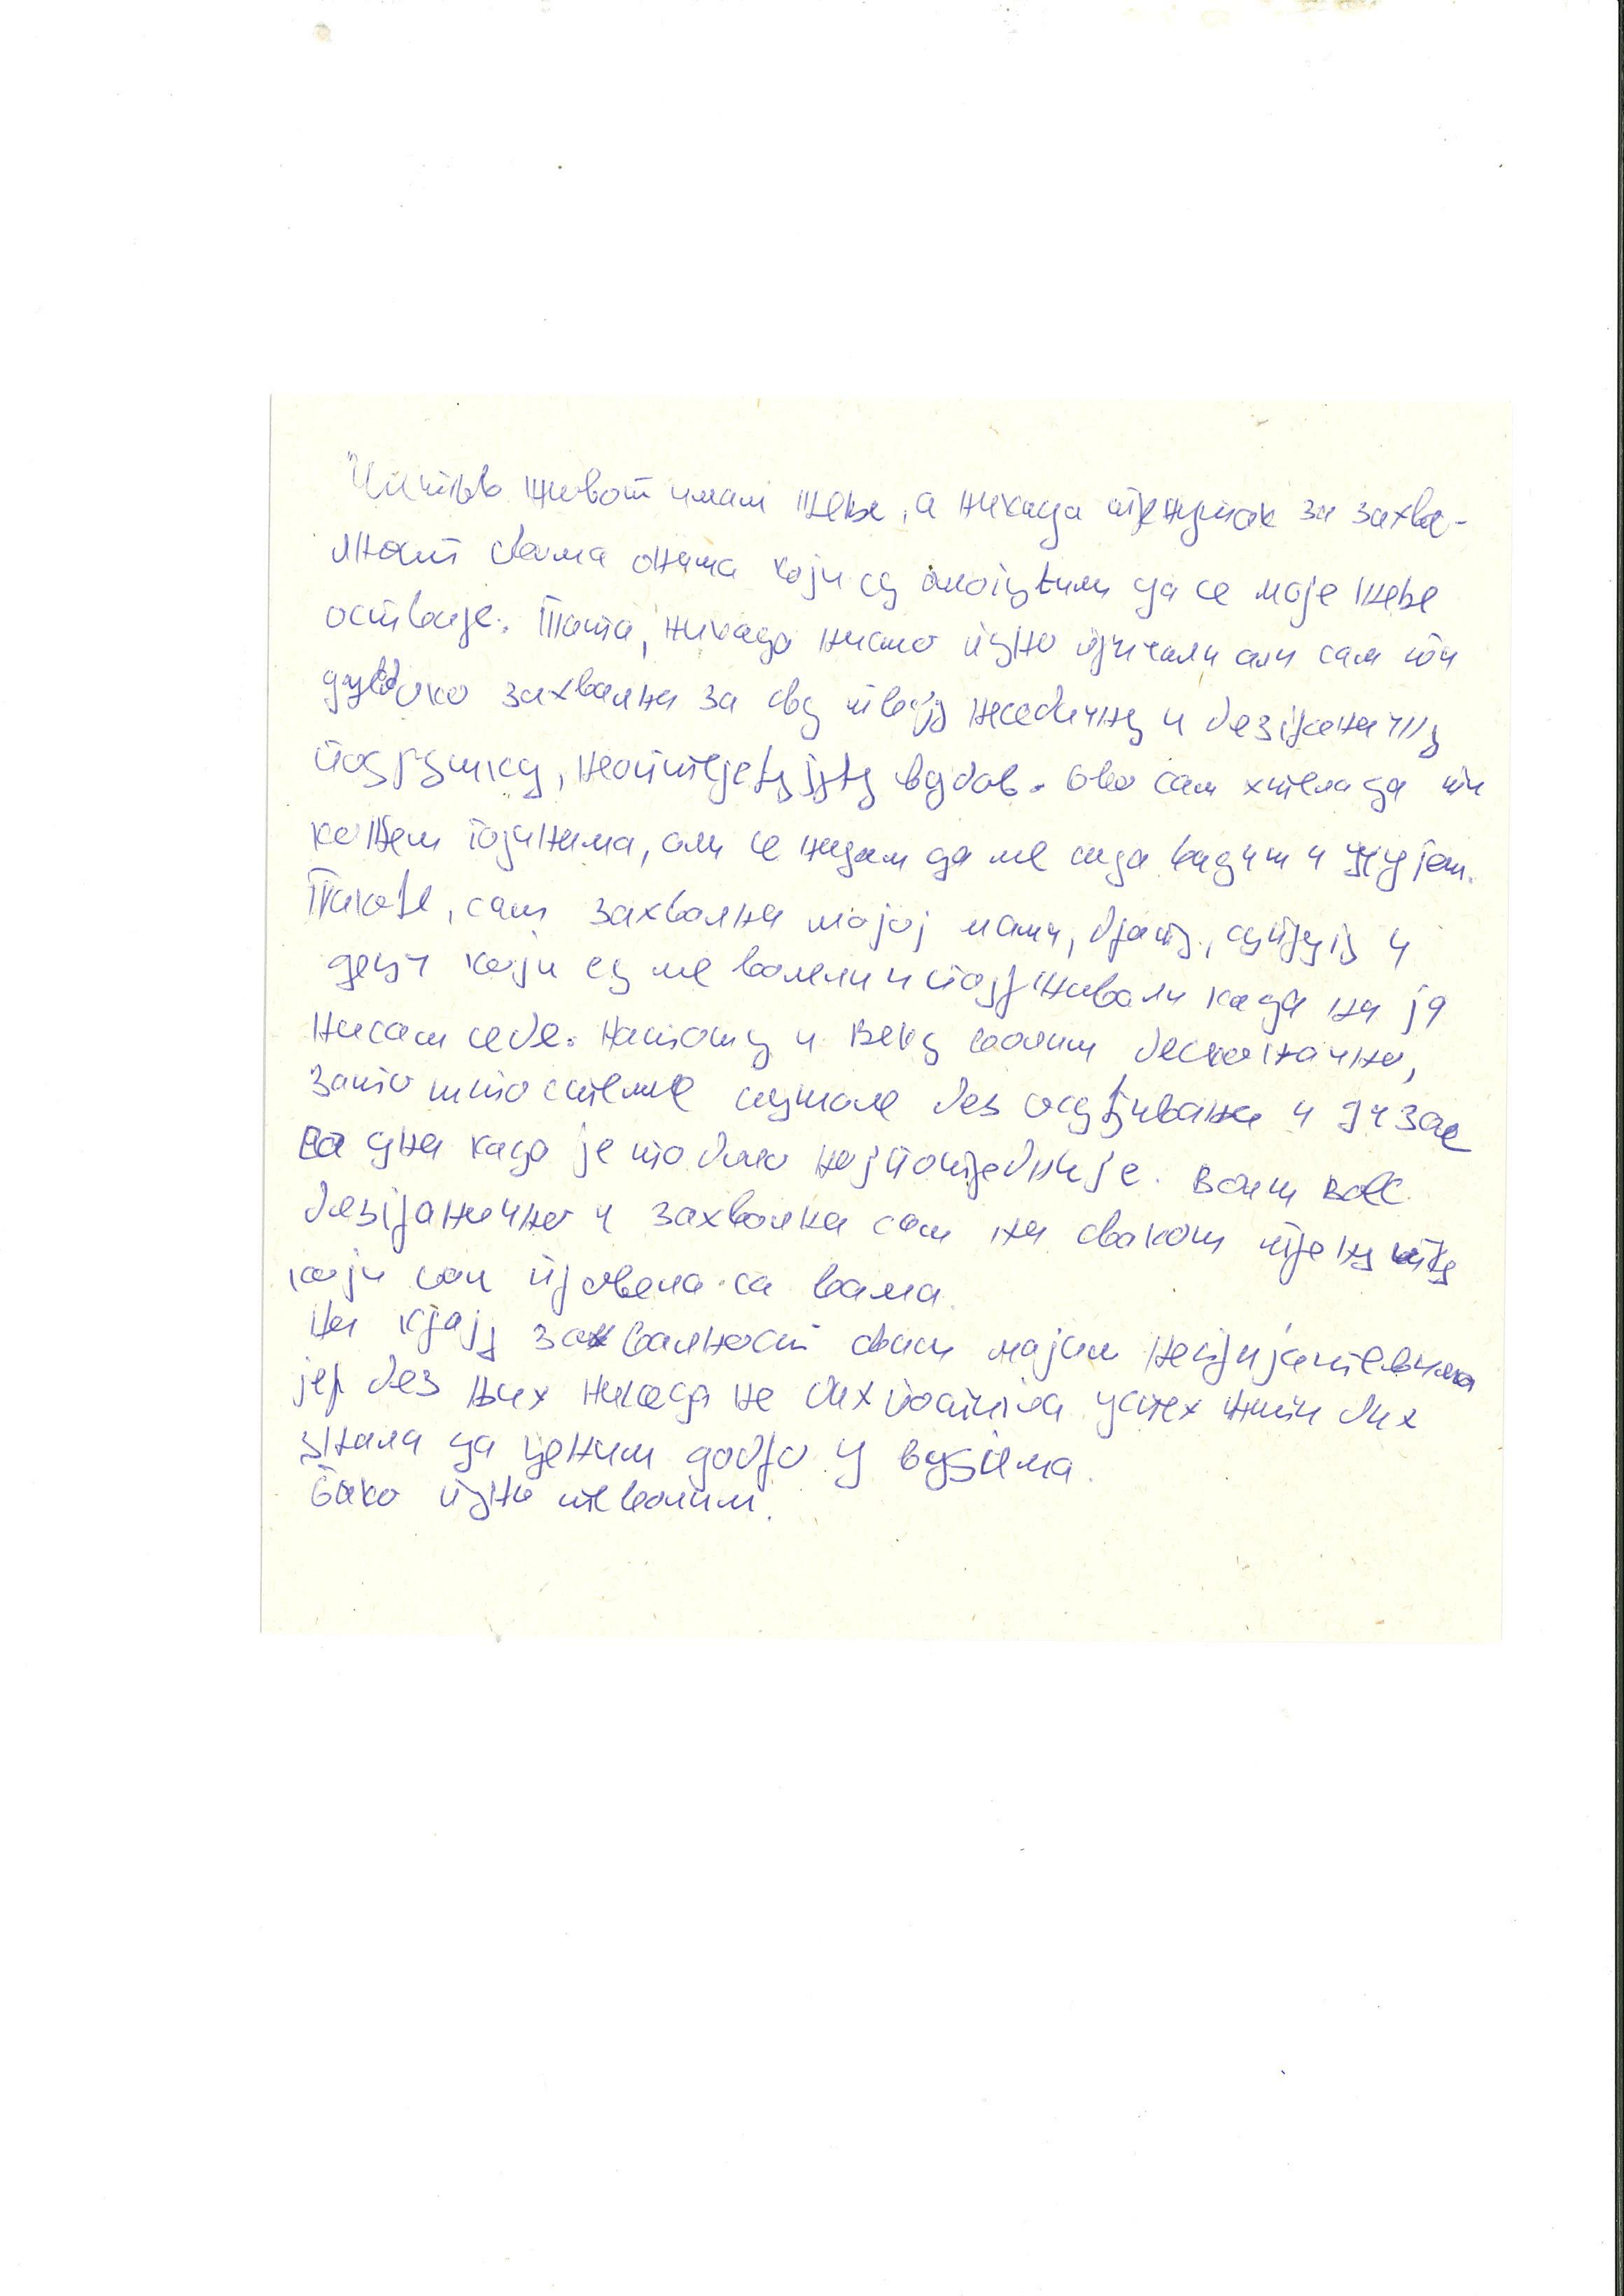 живот имам жеље, а никада тренутак за захва-
лност свима онима који су омогућили да се моје жеље
остваре. Тата, никада нисмо пуно причали али сам ти
дубоко захвална за сву твоју несебичну и безграничну
подршку, неописујућу љубав. Ово сам хтела да ти
кажем годинама, али се надам да ме сада видиш и чујеш.
Такође, сам захвална мојој мами, брату, супругу и
деци који су ме волели и подржавали када ни ја
нисам себе. Наташу и Веку волим бесконачно,
зато што сте ме слушале без осуђивања и дизале
са дна када је то било најпотребније. Волим вас
безгранично и захвална сам на сваком тренутку
који сам провела са вама.
На крају захвалност свим мојим непријатељима
јер без њих никада не бих постигла успех нити бих
знала да ценим добро у људима.
Бако пуно те волим.